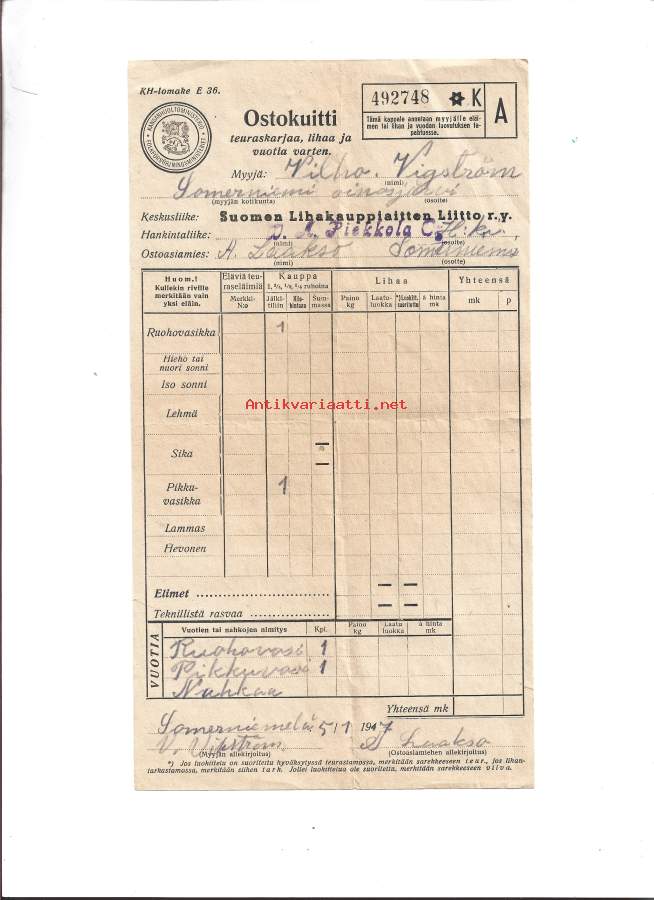 KH-lomake E 36.
KANSANHUOLTOMINISTERIÖ
Ostokuitti
teuraskarjaa, lihaa ja
vuotia varten.
492748 K A
Tämä kappale annetaan myyjälle eläi-
men tai lihan ja vuodan luovutuksen to-
peistuessa.
Myyjä: Vilho. Vigström
(nimi)
Somerniemi oinasjärvi
(myyjän kotikunta) (osoite)
Keskusliike: Suomen Lihakauppiaitten Liitto r.y.
Hankintaliike: D. A. Piekkola
(nimi) (osoite)
Ostoasiamies: A. Laakso Somerniemi
(nimi) (osoite)
Huom.! Kullekin riville merkitään vain yksi eläin.
Eläviä teuraseläimiä Kauppa Lihaa Yhteensä
Merkki-N:o Jälkitiliin Kilohintaan Summassa Paino kg Laatuluokka *) Luokitt. suoritettu à hinta mk mk p
Ruohovasikka 1
Hieho tai
nuori sonni
Iso sonni
Lehmä
Antikvariaatti.net
Sika
Pikku-
vasikka 1
Lammas
Hevonen
Elimet
Teknillistä rasvaa
VUOTIA
Vuotien tai nahkojen nimitys Kpl. Paino kg Laatu luokka à hinta mk
Ruohovasi 1
Pikkuvasi 1
Nahkaa
Yhteensä mk
Somerniemellä 5/1 1947
V. Vigström Laakso
(Myyjän allekirjoitus) (Ostoasiamiehen allekirjoitus)
*) Jos luokittelu on suoritettu hyväksytyssä teurastamossa, merkitään sarekkeeseen teur., jos lihan-
tarkastamossa, merkitään siihen tark. Jollei luokittelua ole suoritettu, merkitään sarekkeeseen viiva.